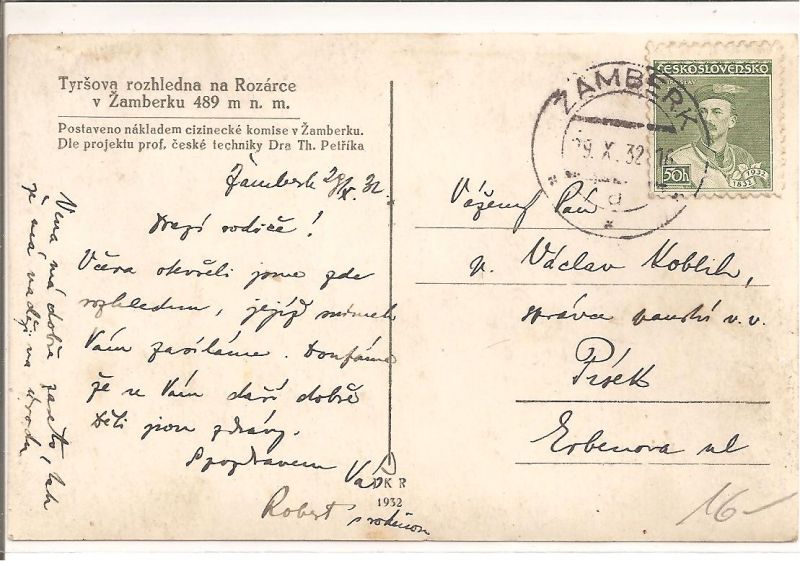 Tyršova rozhledna na Rozárce
v Žamberku 489 m n. m.
Postaveno nákladem cizinecké komise v Žamberku.
Dle projektu prof. české techniky Dra Th. Petříka
Žamberk 28/X. 32.
Drazí rodiče!
Včera otevřeli jsme zde
rozhlednu, jejíž snímek
Vám zasíláme. Doufáme
že se Vám daří dobře
Děti jsou zdrávy.
S pozdravem Váš
Robert s rodinou
má dobře zaseto, tak
je má naději na úrodu
DKR
1932
ŽAMBERK
29. X. 32
d
ČESKOSLOVENSKO
50h
1832 1932
Vážený Pán
p. Václav Koblih,
správce panství v. v.
Písek
Erbenova ul
16-